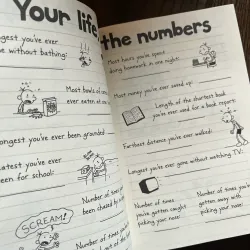 Your life
ngest you've ever
e without bathing:
Most bowls of
ever eaten at
ngest you've ever been grounded
atest you've ever
een for school:
Number of times
been chased by
SCREAM!
Number of times
the numbers
Most hours you've spent
doing homework in one night:
Most money you've ever saved up:
Length of the shortest book
you've ever used for a book report:
Farthest distance you've ever walked:
Longest you've ever gone without watching TV:
Number of times
you've gotten caught
picking your nose:
Number of times
you've gotten away with
picking your nose: